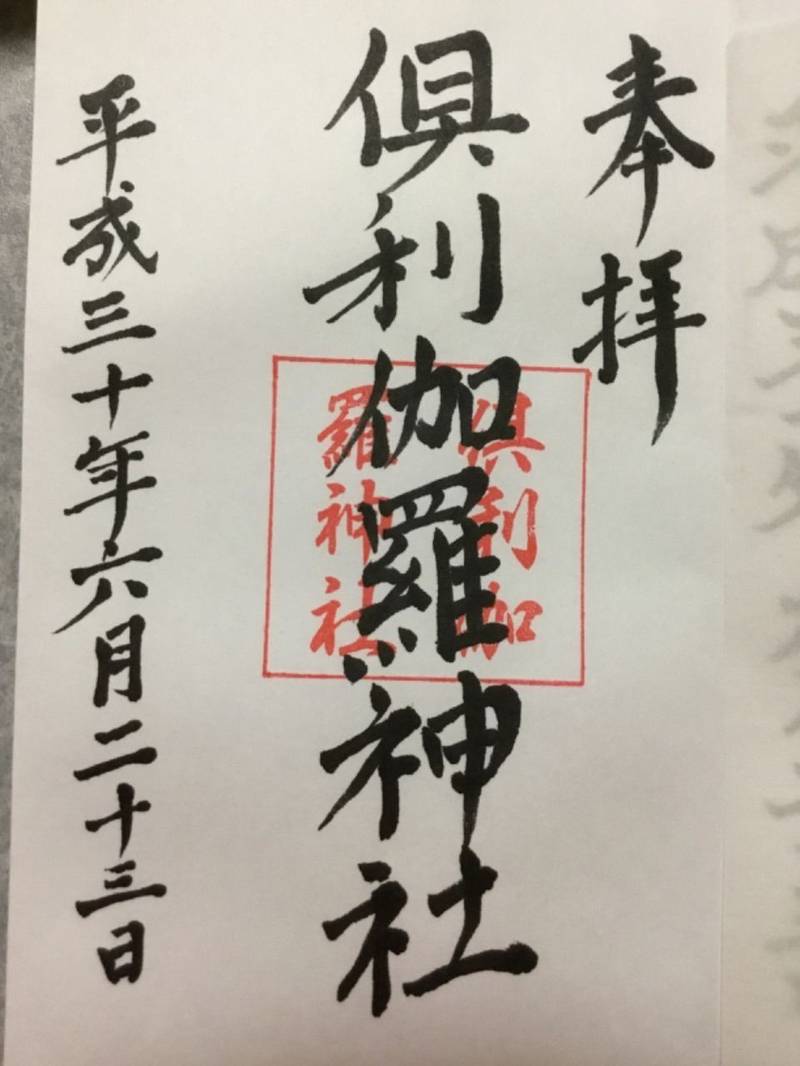 奉拝
倶利伽羅神社
倶利伽
羅神社
平成三十年六月二十三日